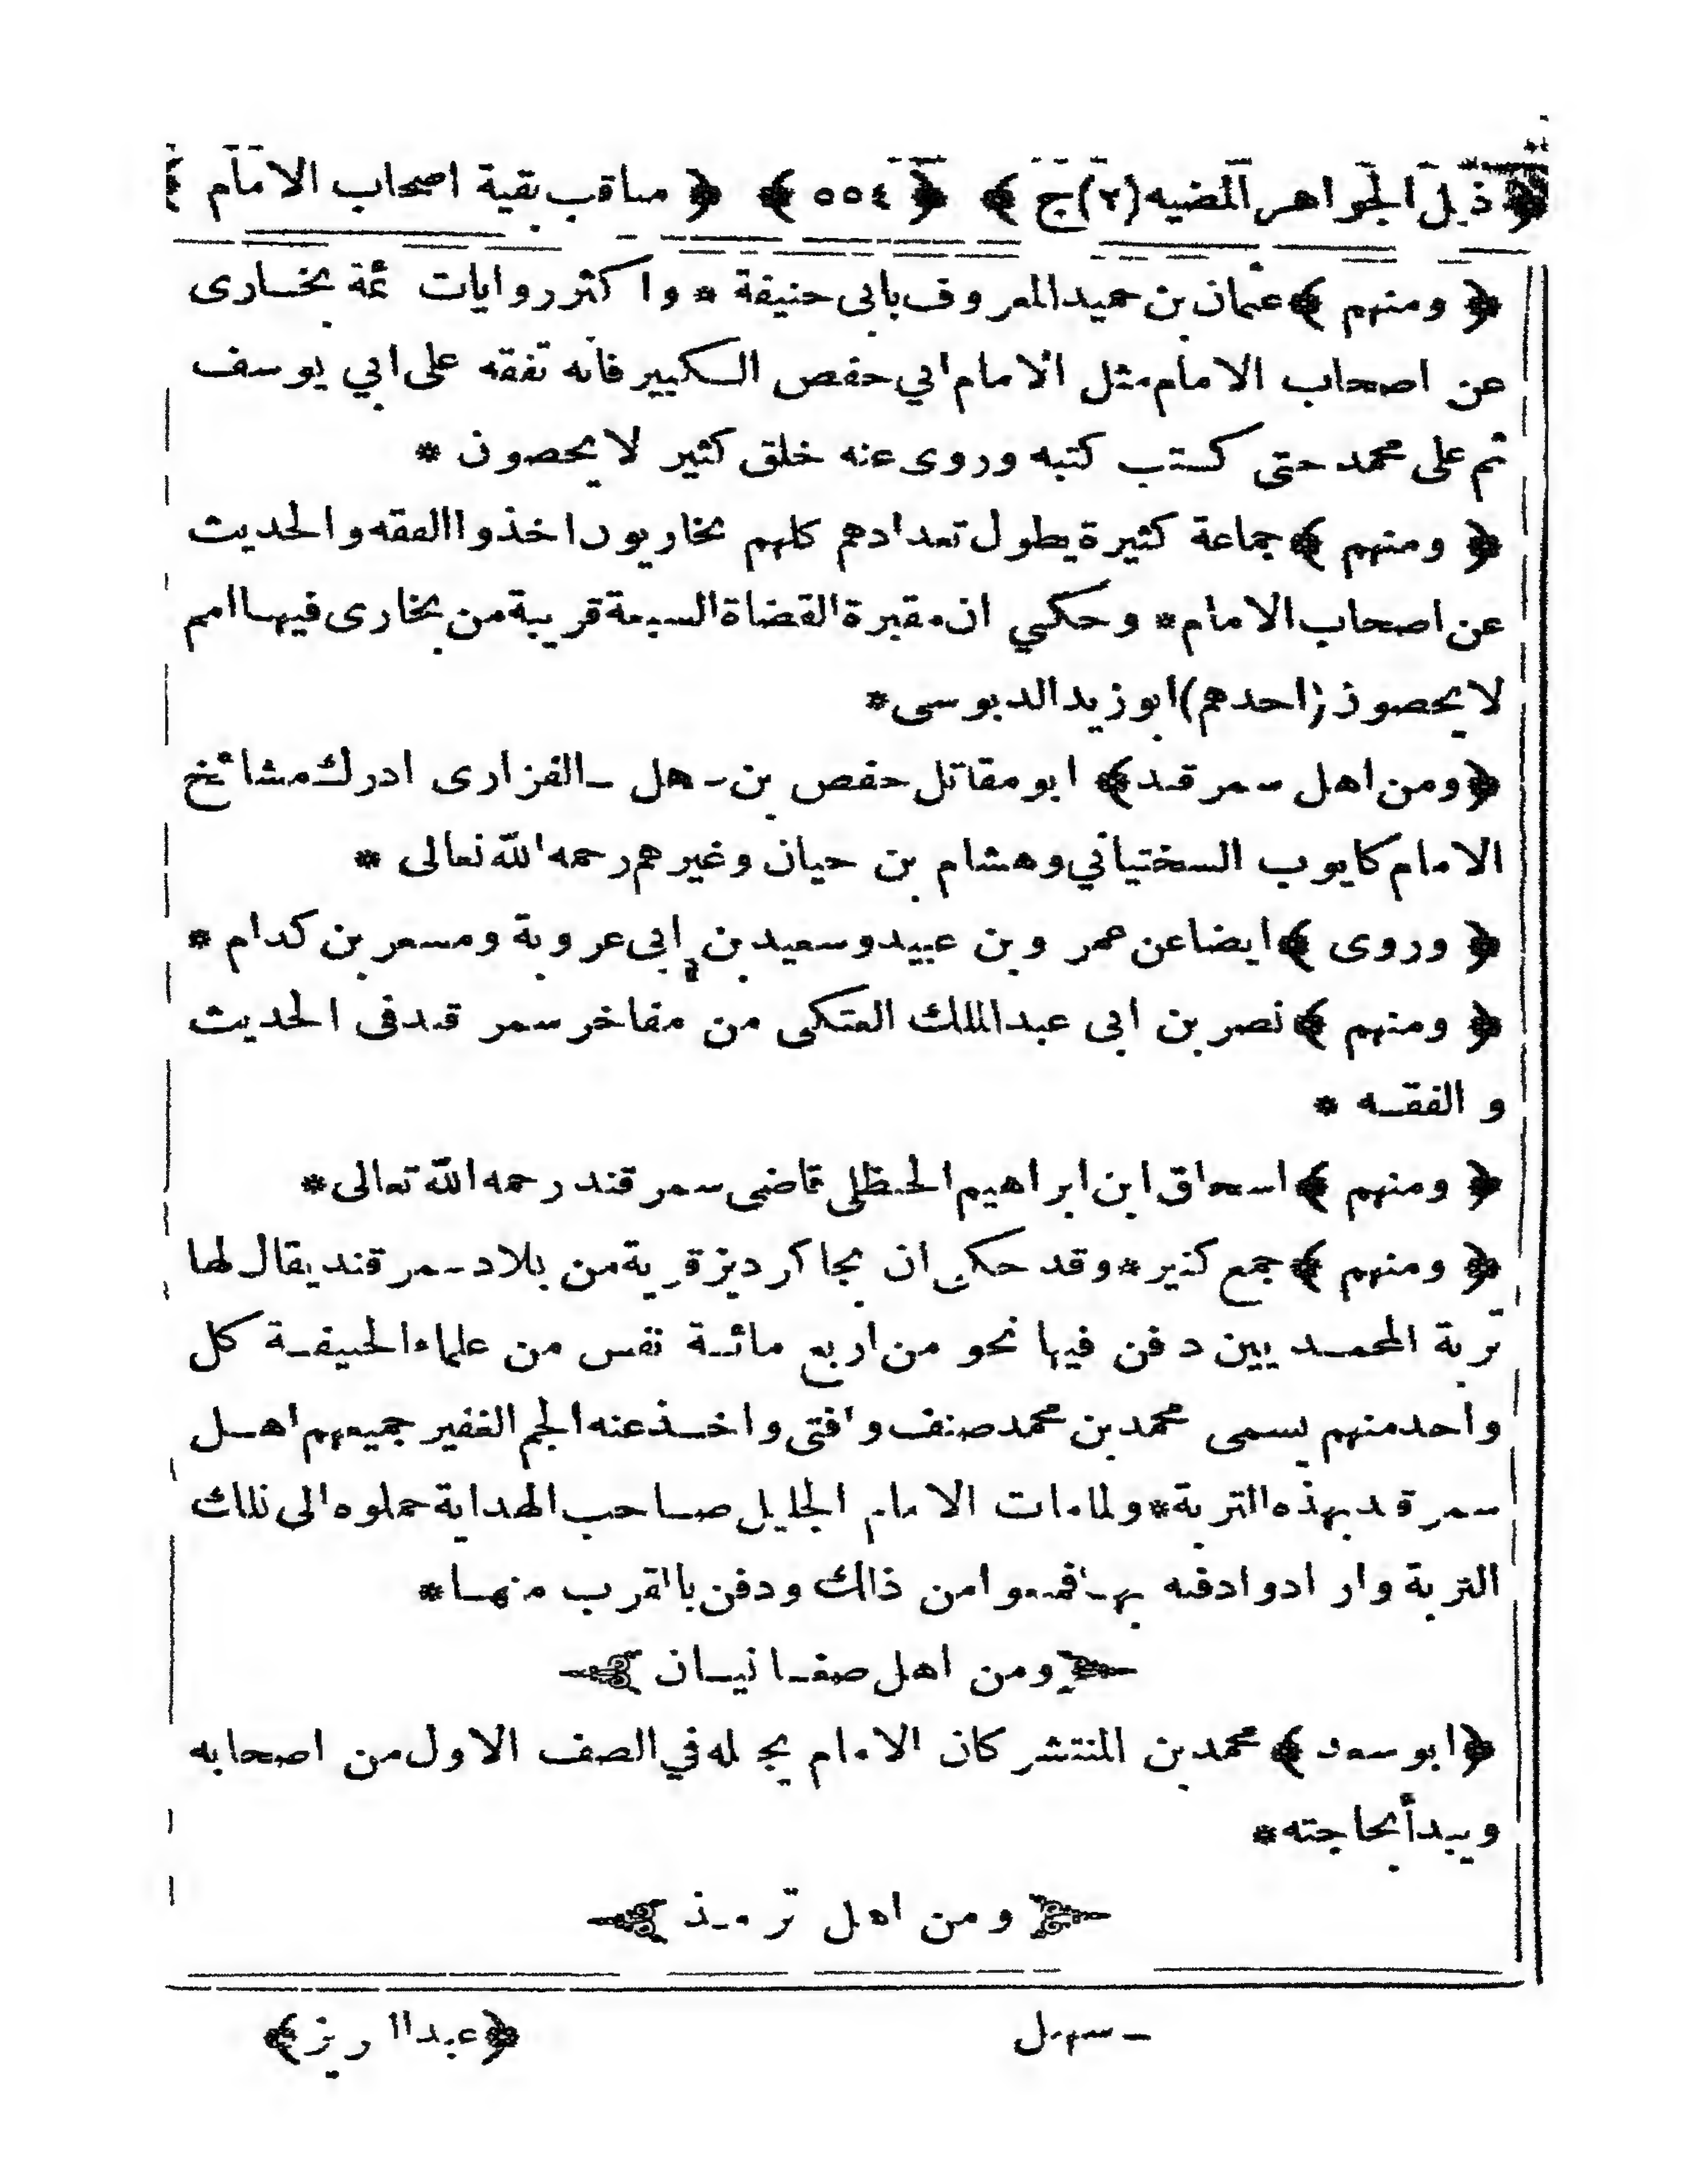 ﴿ ذيل الجواهر المضيه (٢) ج ﴾ ﴿ ٥٥٤ ﴾ ﴿ مناقب بقية اصحاب الامام ﴾
﴿ ومنهم ﴾ عثمان بن حميد المعروف بابى حنيفة * واكثر روايات ئمة بخارى
عن اصحاب الامام مثل الامام ابي حفص الكبير فانه تفقه على ابي يوسف
ثم على محمد حتى كتب كتبه وروى عنه خلق كثير لا يحصون *
﴿ ومنهم ﴾ جماعة كثيرة يطول تعدادهم كلهم بخاريون اخذوا الفقه والحديث
عن اصحاب الامام * وحكي ان مقبرة القضاة السبعة قريبة من بخارى فيها امم
لا يحصون (احدهم) ابو زيد الدبوسى *
﴿ ومن اهل سمرقند ﴾ ابو مقاتل حفص بن سهل الفزارى ادرك مشائخ
الامام كايوب السختياني وهشام بن حيان وغيرهم رحمه الله تعالى *
﴿ وروى ﴾ ايضا عن عمرو بن عبيد وسعيد بن ابى عروبة ومسعر بن كدام *
﴿ ومنهم ﴾ نصر بن ابى عبد الملك العتكى من مفاخر سمرقند فى الحديث
و الفقه *
﴿ ومنهم ﴾ اسحاق ابن ابراهيم الحنظلى قاضى سمرقند رحمه الله تعالى *
﴿ ومنهم ﴾ جمع كثير * وقد حكى ان بجاكرديز قرية من بلاد سمرقند يقال لها
تربة المحمديين دفن فيها نحو من اربع مائة نفس من علماء الحنيفة كل
واحد منهم يسمى محمد بن محمد صنف وافتى واخذ عنه الجم الغفير جميعهم اهل
سمرقند بهذه التربة * ولما مات الامام الجليل صاحب الهداية حملوه الى تلك
التربة وارادوا دفنه بها فمنعوا من ذالك ودفن بالقرب منها *
﴿ ومن اهل صغانيان ﴾
﴿ ابو سعد ﴾ محمد بن المنتشر كان الامام يجعله في الصف الاول من اصحابه
ويبدأ بحاجته *
﴿ ومن اهل ترمذ ﴾
سهل ﴿ عبد العزيز ﴾